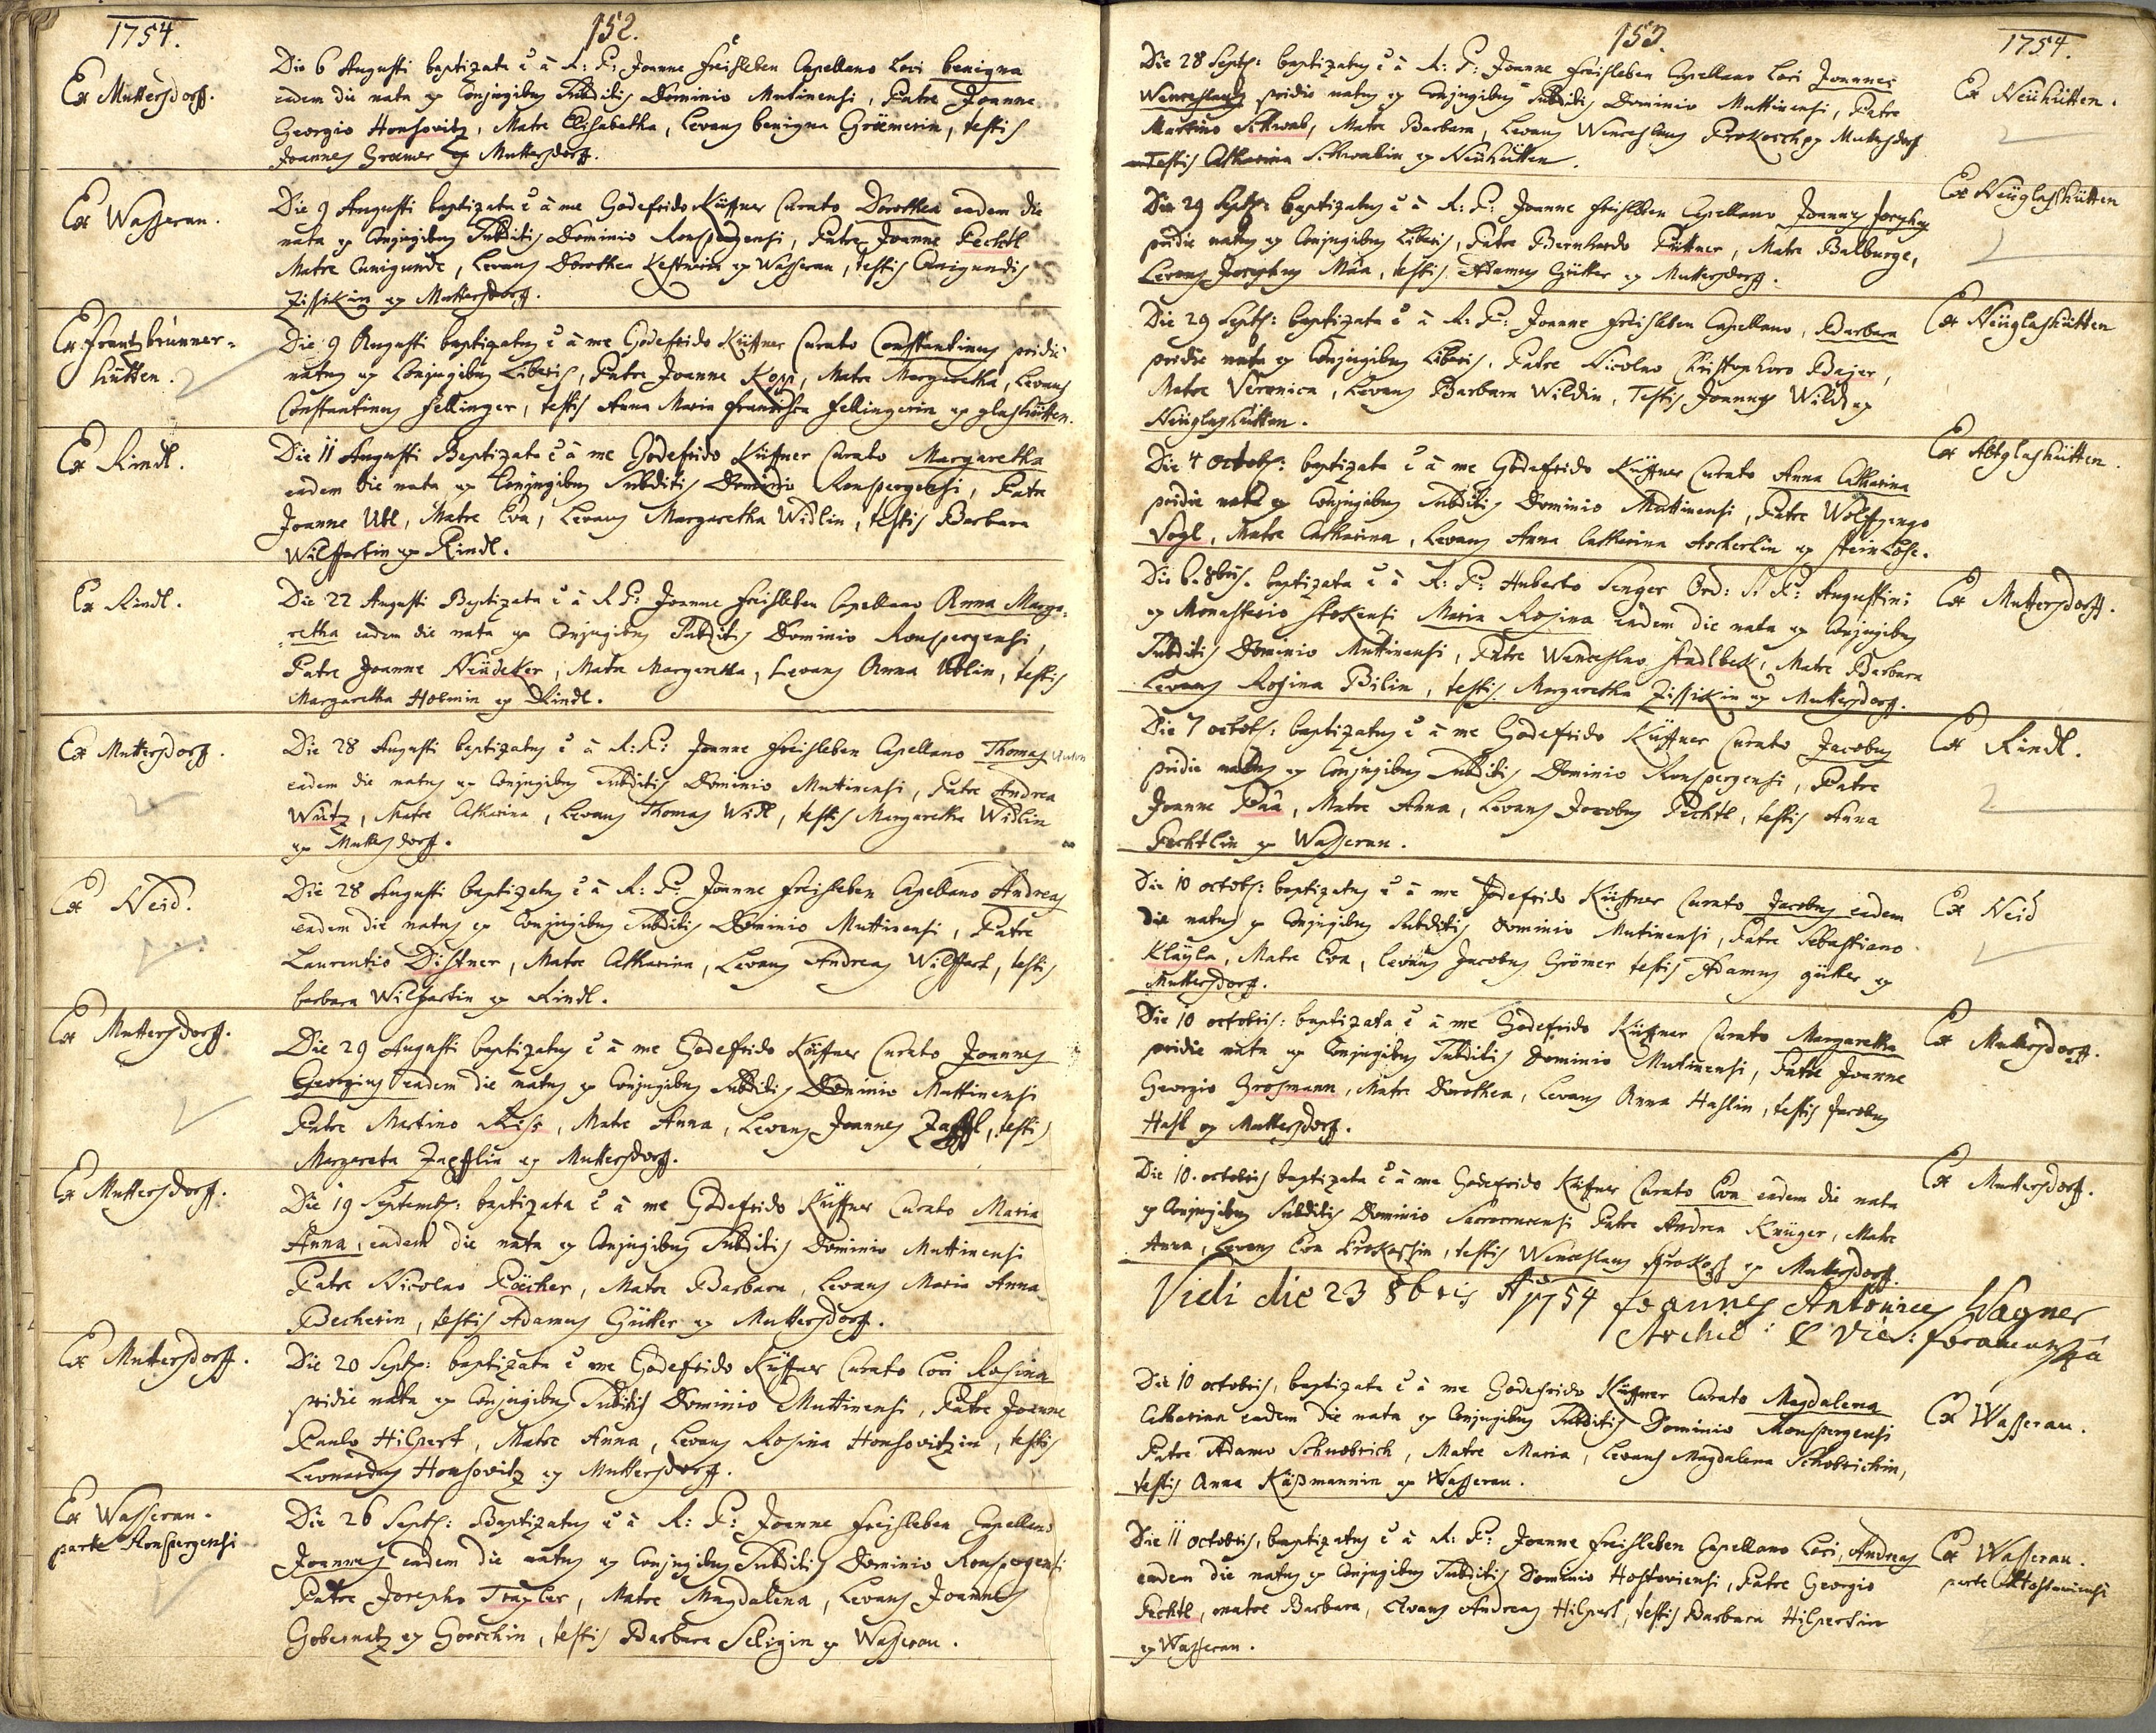 1754.
152.
Ex Muttersdorff.
Die 6 Augusti baptizata ē à R: P: Joanne Freisleben Capellano Loci Benigna
eadem die nata ex Conjugibus Subditis Dominio Mutinensi, Patre Joanne
Georgio Honsovitz, Matre Elisabetha, Levans Benigna Gröemerin, testis
Joannes Groemer ex Muttersdorff.
Ex Wasserau.
Die 9 Augusti baptizata ē à me Godefrido Küffner Curato Dorothea eadem die
nata ex Conjugibus Subditis Dominio Ronspergensi, Patre Joanne Pechtl
Matre Cunigunde, Levans Dorothea ex Wasserau, testis Cunigundis
Zissikin ex Muttersdorff.
Ex Frantzbrunner-
hütten.
Die 9 Augusti baptizatus ē à me Godefrido Küffner Curato Constantinus pridie
natus ex Conjugibus Liberis, Patre Joanne Kopp, Matre Margaretha, Levans
Constantinus Fellinger, testis Anna Maria Francisca Fellingerin ex glashütten.
Ex Rindl.
Die 11 Augusti Baptizata ē à me Godefrido Küffner Curato Margaretha
eadem die nata ex Conjugibus Subditis Dominio Ronspergensi, Patre
Joanne Ubl, Matre Eva, Levans Margaretha Widlin, testis Barbara
Wilffertin ex Rindl.
Ex Rindl.
Die 22 Augusti Baptizata ē à R P: Joanne Freisleben Capellano Anna Marga-
retha eadem die nata ex Conjugibus Subditis Dominio Ronspergensi,
Patre Joanne Neudeker, Matre Margaretha, Levans Anna Ublin, testis
Margaretha ex Rindl.
Ex Muttersdorff.
Die 28 Augusti baptizatus ē à R: P: Joanne Freisleben Capellano Thomas
eadem die natus ex Conjugibus Subditis Dominio Muttinensi, Patre Andrea
Wütz, Matre Catharina, Levans Thomas Widl, testis Margaretha Widlin
ex Muttersdorff.
Ex Neid.
Die 28 Augusti baptizatus ē à R: P: Joanne Freisleben Capellano Andreas
eadem die natus ex Conjugibus Subditis Dominio Muttinensi, Patre
Laurentio Distner, Matre Catharina, Levans Andreas Wilffert, testis
barbara Wilffertin ex Rindl.
Ex Muttersdorff.
Die 29 Augusti baptizatus ē à me Godefrido Küffner Curato Joannes
Georgius eadem die natus ex Conjugibus Subditis Dominio Muttinensi
Patre Martino Riss, Matre Anna, Levans Joannes Zapffl, testis
Margareta Zapfflin ex Muttersdorff.
Ex Muttersdorff.
Die 19 Septemb: baptizata ē à me Godefrido Küffner Curato Maria
Anna, eadem die nata ex Conjugibus Subditis Dominio Muttinensi
Patre Nicolao Pöcher, Matre Barbara, Levans Maria Anna
Becherin, testis Adamus Gütter ex Muttersdorff.
Ex Muttersdorff.
Die 20 Septb: baptizata ē me Godefrido Küffner Curato Loci Rosina
pridie nata ex Conjugibus Subditis Dominio Muttinensi, Patre Joanne
Paulo Hilpert, Matre Anna, Levans Rosina Honsovitzin, testis
Leonardus Honsovitz ex Muttersdorff.
Ex Wasserau.
parte Ronspergensi
Die 26 Septb: Baptizatus ē à R: P: Joanne Freisleben Capellano
Joannes eadem die natus ex Conjugibus Subditis Dominio Ronspergensi
Patre Josepho Trapler, Matre Magdalena, Levans Joannes
Gobernatz ex Gorschin, testis Barbara Seligin ex Wasserau.
153.
1754.
Die 28 Septb: baptizatus ē à R: P: Joanne Freisleben Capellano Loci Joannes
Wenceslaus pridie natus ex Conjugibus Subditis Dominio Muttinensi, Patre
Martino Schwab, Matre Barbara, Levans Wenceslaus Prokosch ex Mutersdorf
Testis Catharina Schwabin ex Neuhütten.
Ex Neuhütten.
Die 29 Septb: baptizatus ē à R: P: Joanne Freisleben Capellano Joannes Josephus
pridie natus ex Conjugibus Liberis, Patre Bernhardo Puttner, Matre Balburge,
Levans Josephus Män, testis Adamus Gütter ex Muttersdorff.
Ex Neüglashütten
Die 29 Septb: baptizata ē à R: P: Joanne Freisleben Capellano, Barbara
pridie nata ex Conjugibus Liberis, Patre Nicolao Christophoro Bajer,
Matre Veronica, Levans Barbara Wildin, Testis Joannes Wild ex
Neüglashütten.
Ex Neüglashütten
Die 4 octob: baptizata ē à me Godefrido Küffner Curato Anna Catharina
pridie nata ex Conjugibus Subditis Dominio Muttinensi, Patre Wolffgango
Vogl, Matre Catharina, Levans Anna Catharina Ascherlin ex Steinlohe.
Ex Altglashütten.
Die 6. 8bris. baptizata ē à R: P: Huberto Senger Ord: S. P: Augustini
ex Monasterio Stokensi Maria Rosina eadem die nata ex Conjugibus
Subditis Dominio Muttinensi, Patre Wenceslao Stadlbek, Matre Barbara
Levans Rosina Bilin, testis Margaretha Zissikin ex Muttersdorf.
Ex Muttersdorff.
Die 7 octob: baptizatus ē à me Godefrido Küffner Curato Jacobus
pridie natus ex Conjugibus Subditis Dominio Ronspergensi, Patre
Joanne Paä, Matre Anna, Levans Jacobus Pechtl, testis Anna
Pechtlin ex Wasserau.
Ex Rindl.
Die 10 octob: baptizatus ē à me Godefrido Küffner Curato Jacobus eadem
die natus ex Conjugibus Subditis Dominio Mutinensi, Patre Sebastiano
Klayla, Matre Eva, levans Jacobus Grömer testis Adamus gütter ex
Muttersdorf.
Ex Neid
Die 10 octobris: baptizata ē à me Godefrido Küffner Curato Margaretha
pridie nata ex Conjugibus Subditis Dominio Mutinensi, Patre Joanne
Georgio Grosmann, Matre Dorothea, Levans Anna Haslin, testis Jacobus
Hasl ex Muttersdorff.
Ex Muttersdorff.
Die 10. octobris baptizata ē à me Godefrido Küffner Curato Eva eadem die nata
ex Conjugibus Subditis Dominio Patre Andrea Krüger, Matre
Anna, Levans Eva Prokoschin, testis Wenceslaus Prokosch ex Muttersdorff.
Ex Muttersdorff.
Vidi die 23 8bris Ao 1754 Joannes Antonius Wagner
Archid: & Vic: foraneus
Die 10 octobris, baptizata ē à me Godefrido Küffner Curato Magdalena
Catharina eadem die nata ex Conjugibus Subditis Dominio Ronspergensi
Patre Adamo Schnobrich, Matre Maria, Levans Magdalena Schobrichin,
testis Anna Käßmannin ex Wasserau.
Ex Wasserau.
Die 11 octobris, baptizatus ē à R: P: Joanne Freisleben Capellano Loci, Andreas
eadem die natus ex Conjugibus Subditis Dominio Hostoviensi, Patre Georgio
Pechtl, matre Barbara, Levans Andreas Hilpert, testis Barbara Hilpertin
ex Wasserau.
Ex Wasserau.
parte Hostoviensi